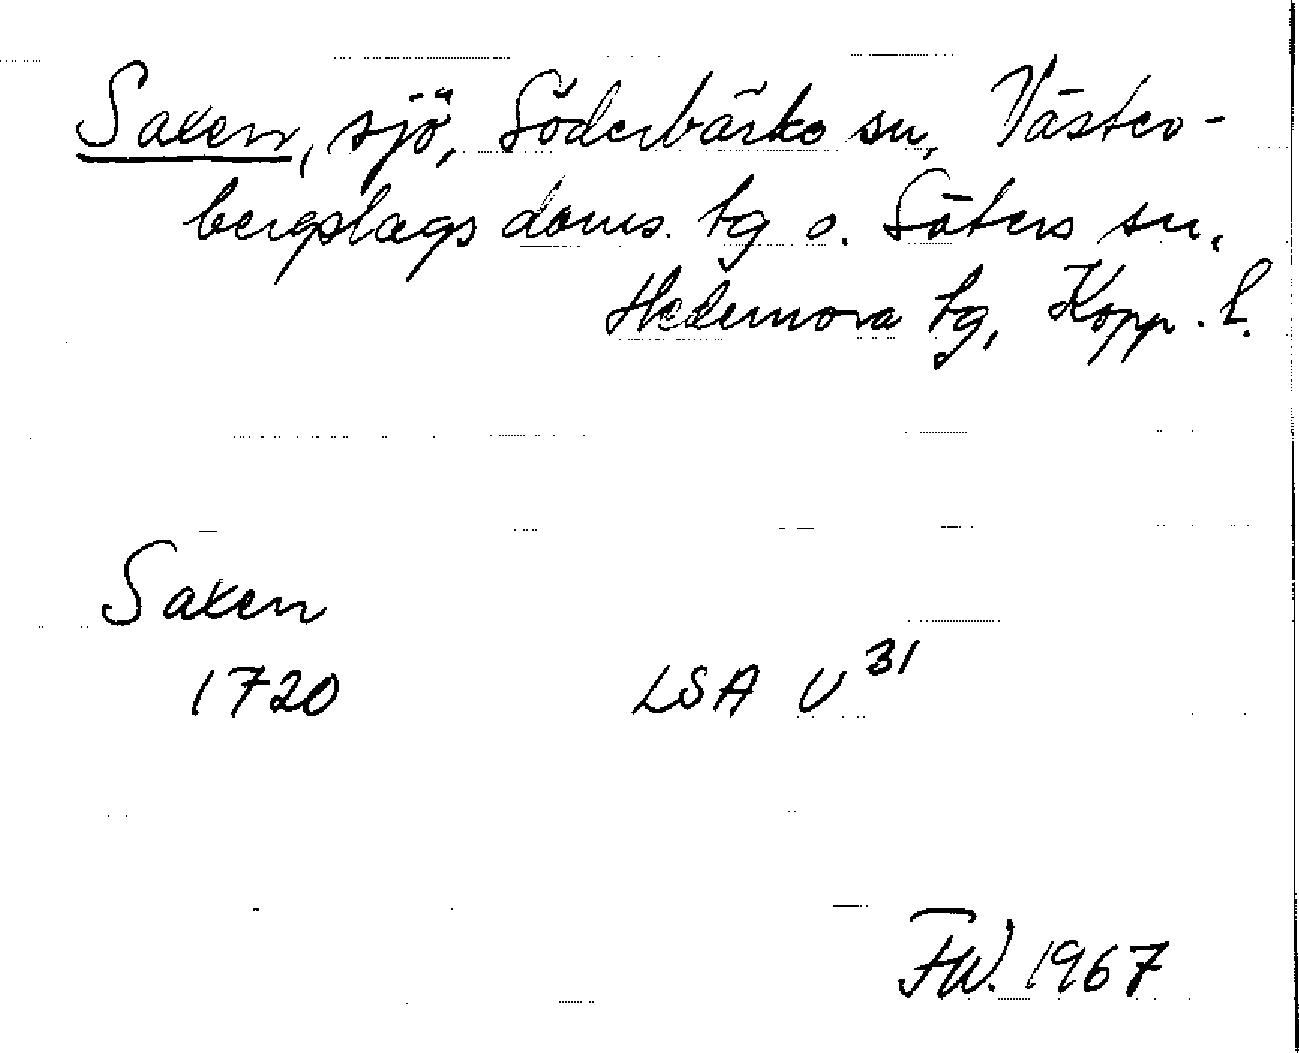 Saxen, sjö, Söderbärke sn, Väster-
bergslags doms. tg o. Säters sn,
Hedemora tg, Kopp. l.
Saxen
1720 LSA U 31
FW. 1967